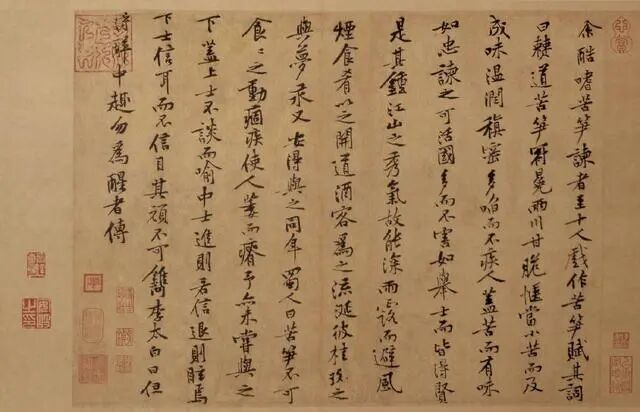 余酷嗜苦笋諫者至十人戲作苦笋賦其詞
曰僰道苦笋冠冕兩川甘脆愜當小苦而及
成味温潤稹密多啗而不疾人盖苦而有味
如忠諫之可活國多而不害如舉士而皆得賢
是其鍾江山之秀氣故能深雨露而避風
煙食肴以之開道酒客爲之流涎彼桂玫之
與夢永又安得與之同年蜀人曰苦笋不可
食〻之動痼疾使人萎而瘠予亦未嘗與之
下盖上士不談而喻中士進則若信退則眩焉
下士信耳而不信目其頑不可鐫李太白曰但
得醉中趣勿爲醒者傳